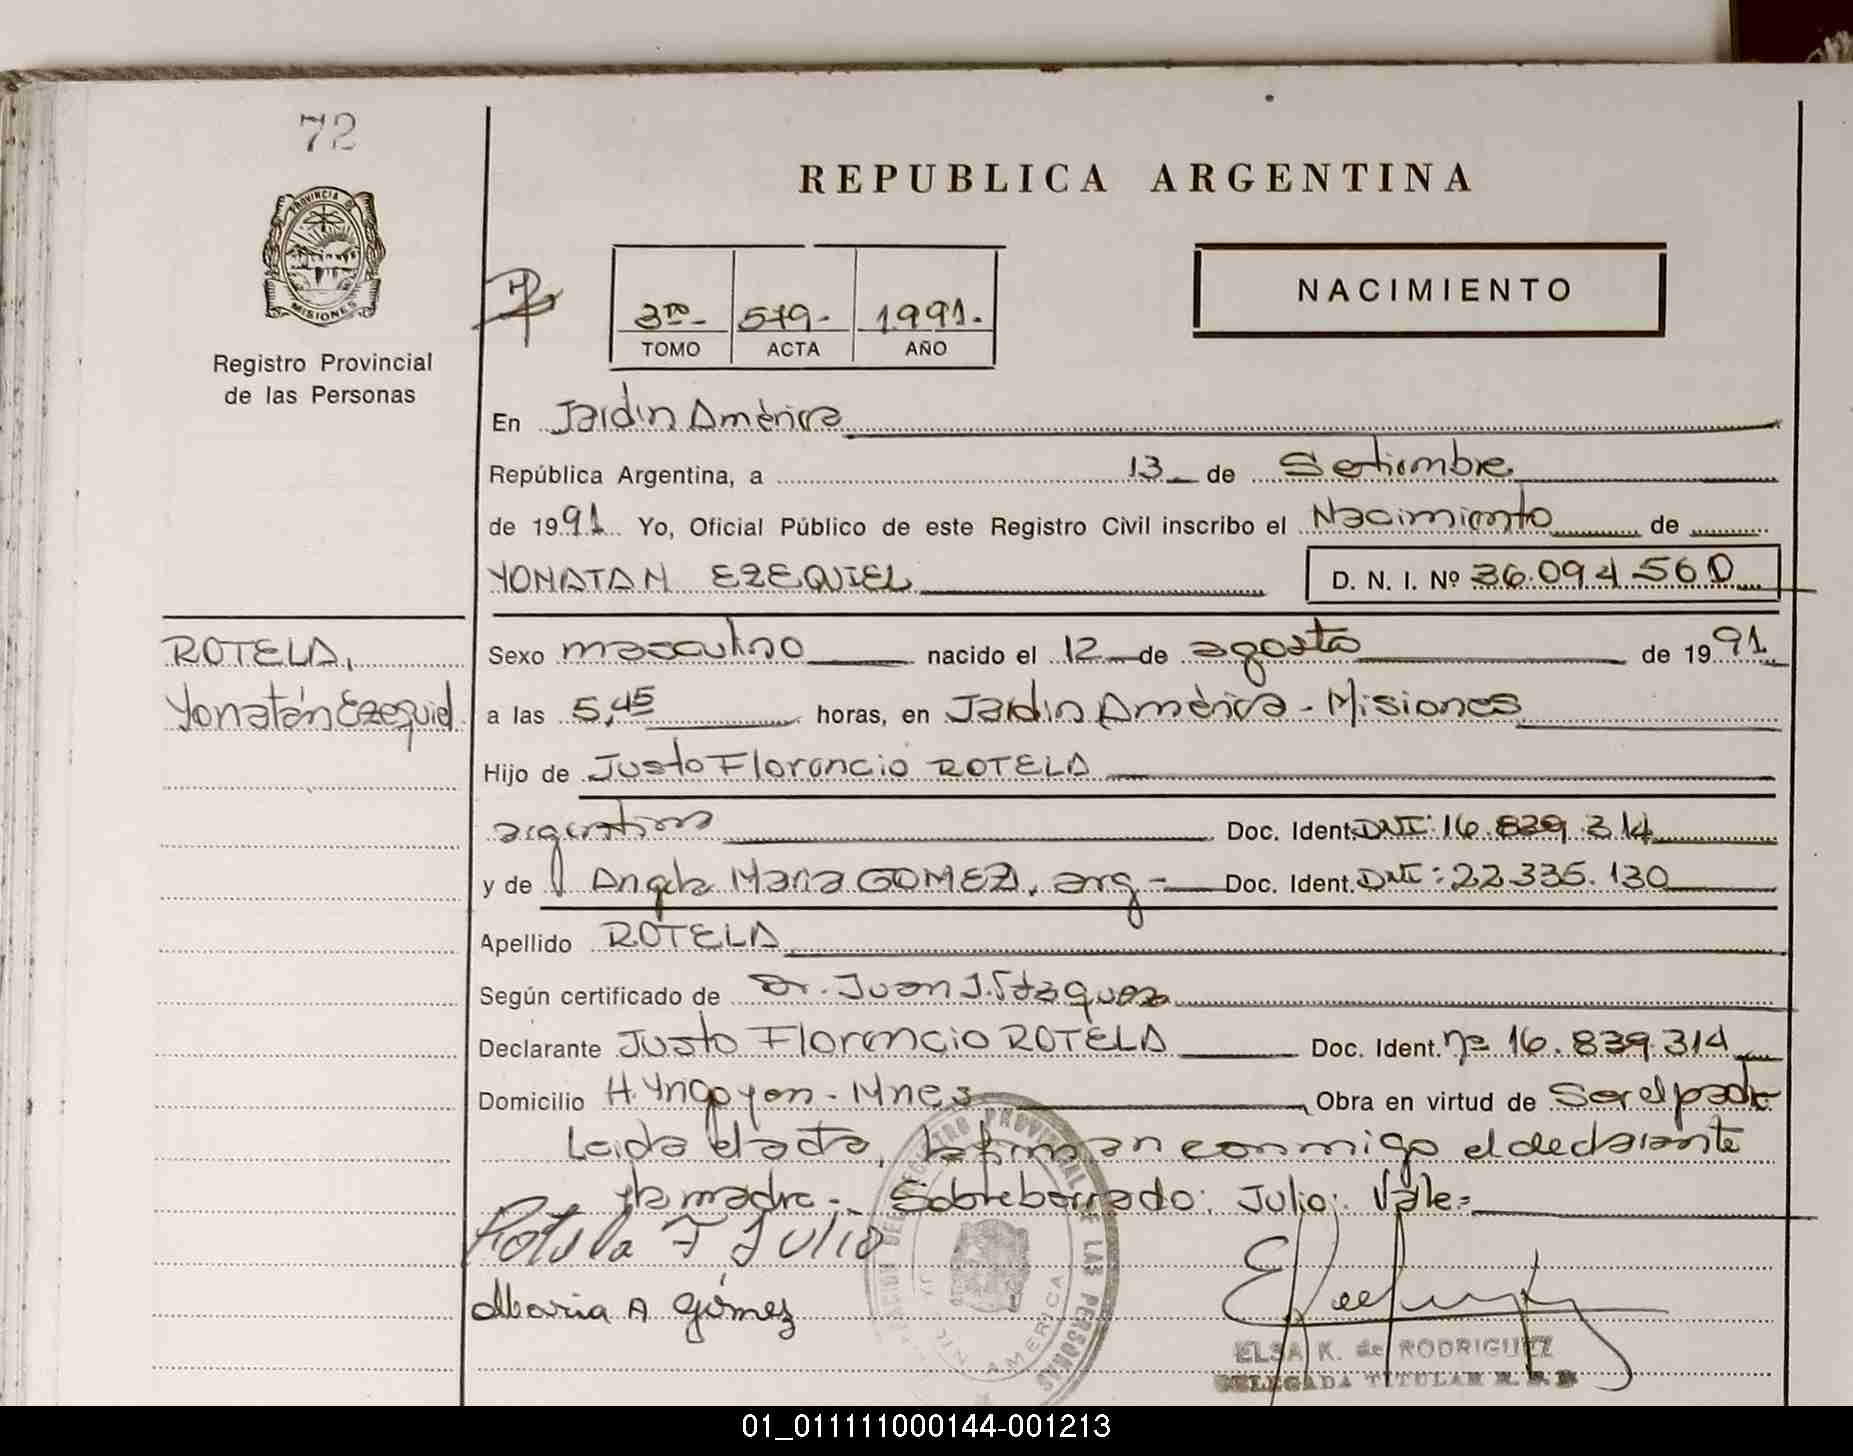 72
PROVINCIA DE
MISIONES
Registro Provincial
de las Personas
REPUBLICA ARGENTINA
NACIMIENTO
3ro- 579- 1991.
TOMO ACTA AÑO
En Jardín América
República Argentina, a 13 de Setiembre
de 1991 Yo, Oficial Público de este Registro Civil inscribo el Nacimiento de
YONATAN EZEQUIEL D. N. I. Nº 36.094.560
ROTELA,
Yonatán Ezequiel
Sexo masculino nacido el 12 de agosto de 1991
a las 5,45 horas, en Jardín América - Misiones
Hijo de Justo Florencio ROTELA
argentino Doc. Ident. DNI: 16.839.314
y de Angela María GOMEZ, arg - Doc. Ident. DNI: 22.335.130
Apellido ROTELA
Según certificado de Dr. Juan J.
Declarante Justo Florencio ROTELA Doc. Ident. nº 16.839.314
Domicilio H. Yrigoyen - Mnes Obra en virtud de Ser el padre
Leida el acta, la firman conmigo el declarante
y la madre-. Sobreborrado: Julio: Vale=
Rotela F Julio
Maria A Gómez
REGISTRO PROVINCIAL DE LAS PERSONAS
JARDIN AMERICA
ELSA K. de RODRIGUEZ
DELEGADA TITULAR R. P. P.
01_011111000144-001213